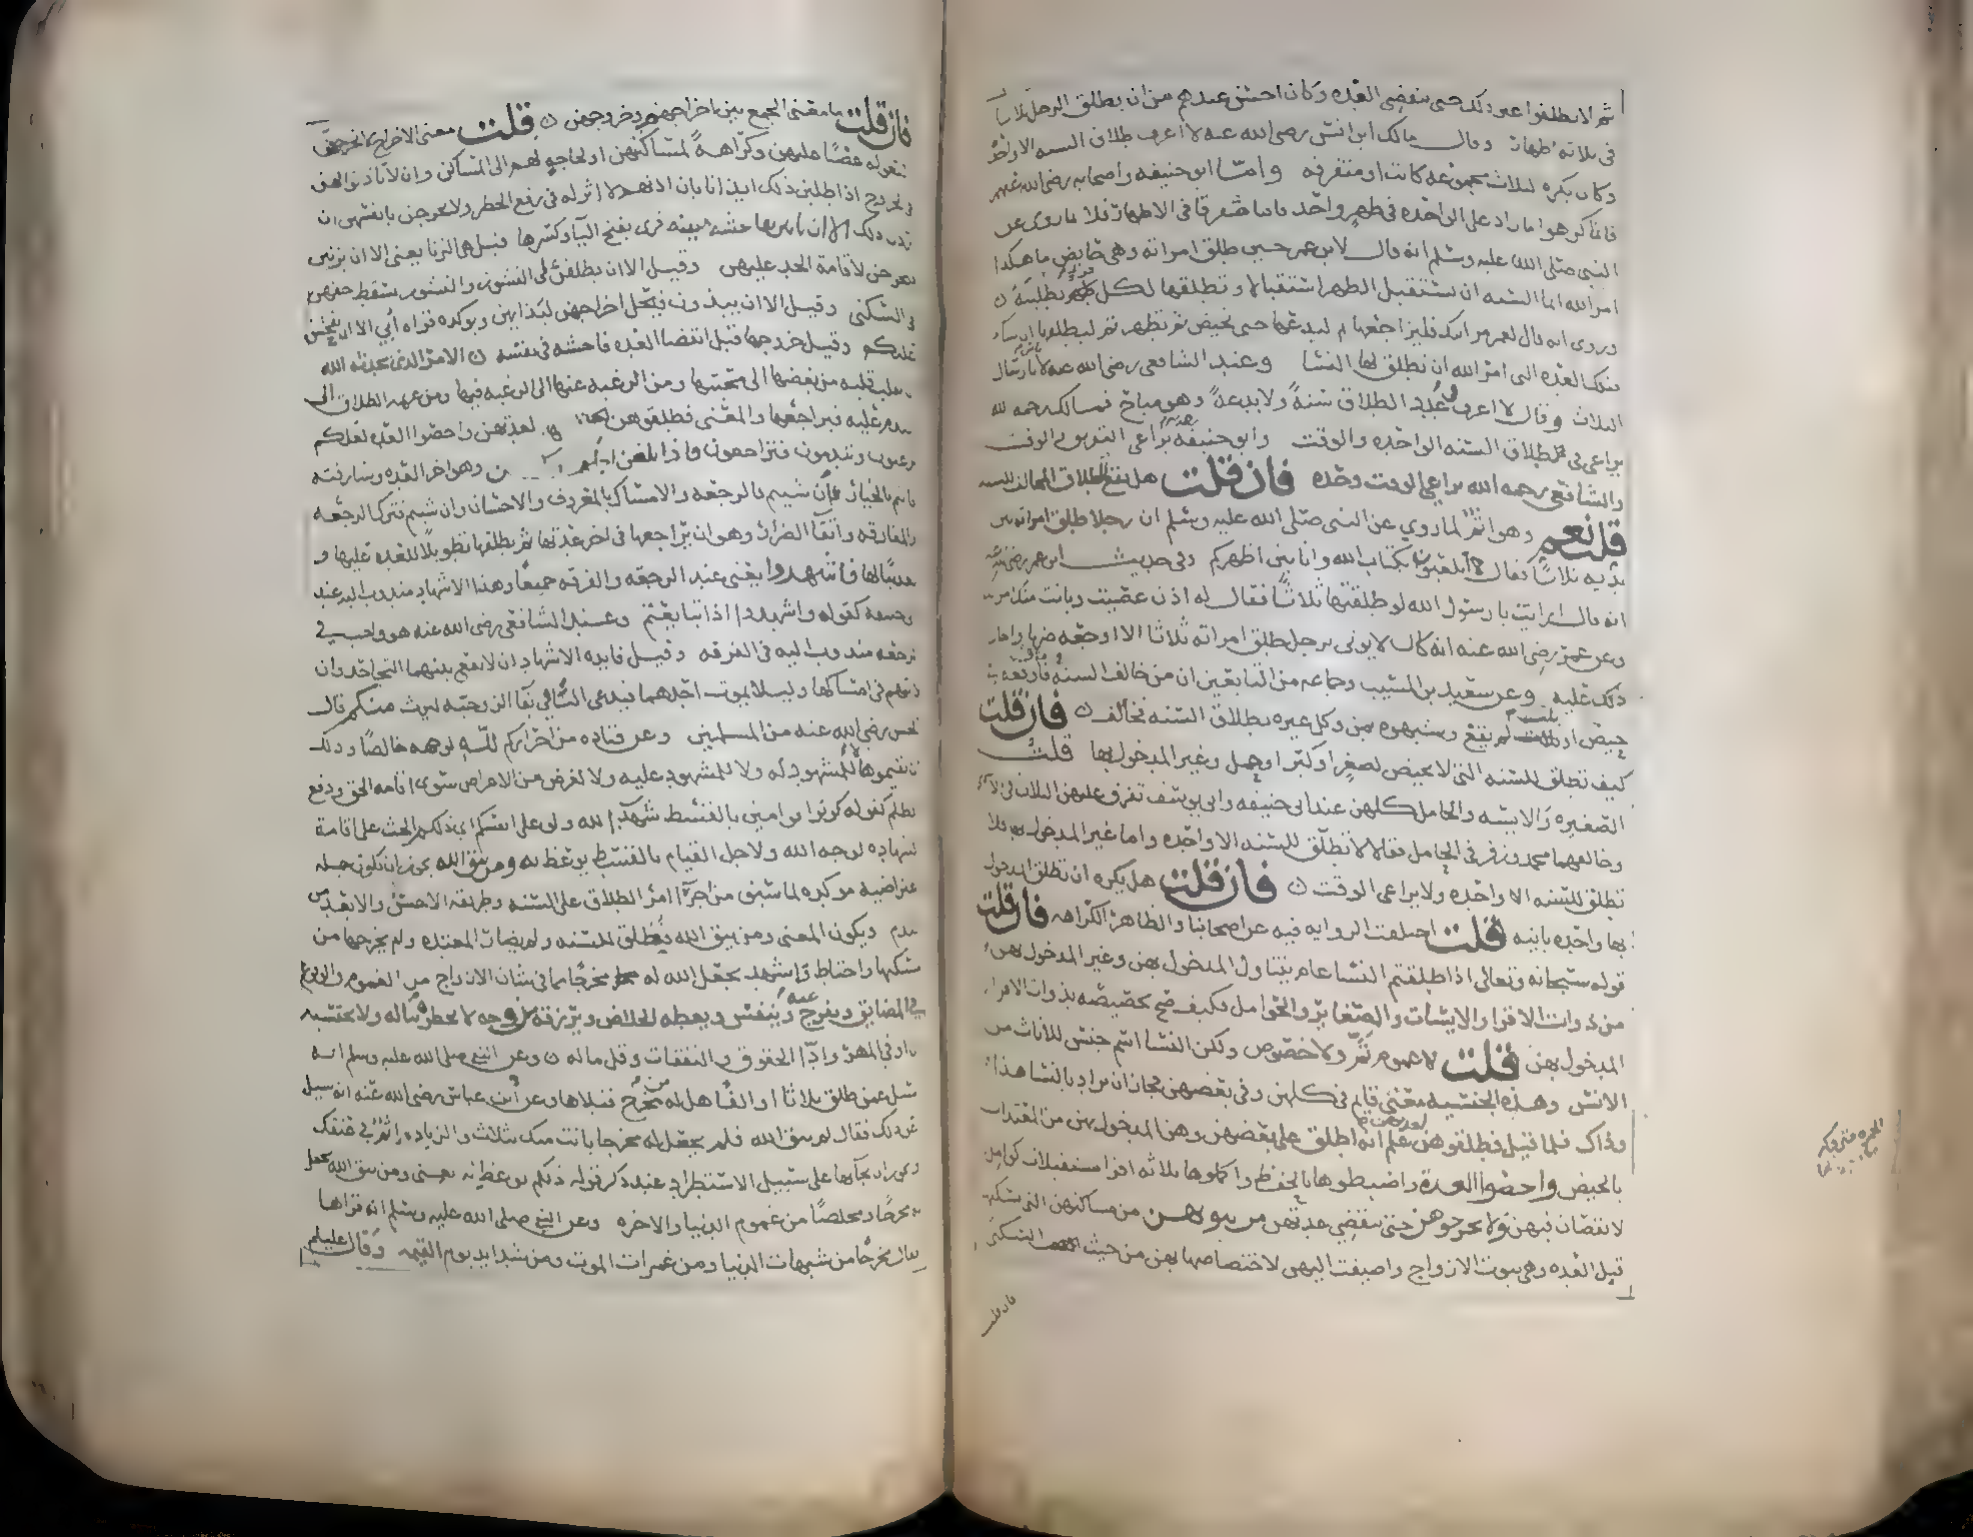 ثم لا يطلقوا غير ذلك حتى تنقضي العده وكان احسن عندهم من ان يطلق الرجل ثلاثا
في ثلاثه اطهار وقال مالك ابن انس رضى الله عنه لا اعرف طلاق السنه الا واحده
وكان يكره الثلاث مجموعه كانت او متفرقه واما ابو حنيفه واصحابه رضى الله عنهم
فانما كرهوا ما زاد على الواحده في طهر واحد فاما مفرقا في الاطهار فلا لما روى عن
النبي صلى الله عليه وسلم انه قال لابن عمر حين طلق امراته وهى حايض ما هكذا
امرك الله انما السنه ان تستقبل الطهر استقبالا وتطلقها لكل قرء تطليقة
وروى انه قال لعمر مر ابنك فليراجعها ثم ليدعها حتى تحيض ثم تطهر ثم ليطلقها ان شاء
فتلك العده التى امر الله ان تطلق لها النسا وعند الشافعي رضى الله عنه لا باس بارسال
الثلاث وقال لا اعرف في عدد الطلاق سنة ولا بدعة وهو مباح فمالك رحمه الله
يراعى في طلاق السنه الواحده والوقت وابو حنيفه يراعى التفريق والوقت
والشافعي رحمه الله يراعى الوقت وحده فان قلت هل يقع الطلاق المخالف للسنه
قلت نعم وهو اثم لما روي عن النبى صلى الله عليه وسلم ان رجلا طلق امراته بين
يديه ثلاثا فقال اتلعبون بكتاب الله وانا بين اظهركم وفى حديث ابن عمر رضى الله عنه
انه قال ارايت يا رسول الله لو طلقتها ثلاثا فقال له اذن عصيت وبانت منك امرتك
وعن عمر رضي الله عنه انه كان لا يوتى برجل طلق امراته ثلاثا الا اوجعه ضربا واجاز
ذلك عليه وعن سعيد بن المسيب وجماعه من التابعين ان من خالف السنه فاوقعه في
حيض او ثلث لم يقع وشبهوه بمن وكل غيره بطلاق السنه فخالف فان قلت
كيف تطلق للسنه التى لا تحيض لصغر او كبر او حمل وغير المدخول بها قلت
الصغيره والايسه والحامل كلهن عند ابى حنيفه وابى يوسف تفرق عليهن الثلاث في الاشهر
وخالفهما محمد وزفر فى الحامل فقالا لا تطلق للسنه الا واحده واما غير المدخول بها فلا
تطلق للسنه الا واحده ولا يراعى الوقت فان قلت هل يكره ان تطلق المدخول
بها واحده باينه قلت اختلفت الروايه فيه عن اصحابنا والظاهر الكراهه فان قلت
قوله سبحانه وتعالى اذا طلقتم النسا عام يتناول المدخول بهن وغير المدخول بهن
من ذوات الاقرا والايسات والصغاير والحوامل فكيف صح تخصيصه بذوات الاقراء
المدخول بهن قلت لا عموم ثم ولا خصوص ولكن النسا اسم جنس للاناث من
الانس وهذه الجنسيه معنى قايم فى كلهن وفى بعضهن فجاز ان يراد بالنسا هذا
وذاك فلما قيل فطلقوهن لعدتهن علم انه اطلق على بعضهن وهن المدخول بهن من المعتدات
بالحيض واحصوا العده واضبطوها بالحفظ واكملوها ثلاثه اقرا مستقبلات كوامل
لا نقصان فيهن ولا تخرجوهن حتى تنقضي عدتهن من بيوتهن من مساكنهن التى تسكنها
قبل العده وهى بيوت الازواج واضيفت اليهن لاختصاصها بهن من حيث السكنى
فان قلت
فان قلت ما معنى الجمع بين اخراجهن وخروجهن قلت معنى الاخراج ان يخرجهن
البعوله غضبا عليهن وكراهة لمساكنتهن او لحاجه لهم الى المساكن وان لا ياذنوا لهن
فى الخروج اذا طلبن ذلك ايذانا بان اذنهم لا اثر له في رفع الحظر ولا يخرجن بانفسهن ان
اردن ذلك الا ان ياتين بفاحشه مبينه قرى بفتح اليا وكسرها قيل هى الزنا يعنى الا ان يزنين
فيخرجن لاقامة الحد عليهن وقيل الا ان يطلقن على النشوز والنشوز يسقط حقهن
فى السكنى وقيل الا ان يبذون فيحل اخراجهن لبذايهن ويوكده قراه أبي الا ان يفحش
عليكم وقيل خروجها قبل انقضا العده فاحشه فى نفسه الامر الذى يحدثه الله
ان يقلب قلبه من بغضها الى محبتها ومن الرغبه عنها الى الرغبه فيها ومن عزيمه الطلاق الى
الندم عليه فيراجعها والمعنى فطلقوهن لعدتهن واحصوا العده لعلكم
ترغبون وتندمون فتراجعون فاذا بلغن اجلهن وهو اخر العده وشارفنه
فانتم بالخيار ان شيتم فالرجعه والامساك بالمعروف والاحسان وان شيتم فترك الرجعه
والمفارقه واتقا الضرار وهو ان يراجعها فى اخر عدتها ثم يطلقها تطويلا للعده عليها و
تعذيبا لها واشهدوا يعنى عند الرجعه والفرقه جميعا وهذا الاشهاد مندوب اليه عند
ابى حنيفه كقوله واشهدوا اذا تبايعتم وعند الشافعى رضى الله عنه هو واجب في
الرجعه مندوب اليه فى الفرقه وقيل فايده الاشهاد ان لا يقع بينهما التجاحد وان
لا يتهم فى امساكها وليلا يموت احدهما فيدعى الثانى بقا الزوجيه ليرث منكم قال
الحسن رضى الله عنه من المسلمين وعن قتاده من احراركم لله لوجهه خالصا وذلك
ان تقيموها لا للمشهود له ولا للمشهود عليه ولا لغرض من الاغراض سوى اقامه الحق ودفع
الظلم كقوله كونوا قوامين بالقسط شهدا لله ولو على انفسكم اى ذلكم الحث على اقامة
الشهاده لوجه الله ولاجل القيام بالقسط يوعظ به ومن يتق الله يجوز ان تكون جمله
اعتراضيه موكده لما سبق من اجرا امر الطلاق على السنه وطريقه الاحسن والابعد من
الندم ويكون المعنى ومن يتق الله فطلق للسنه ولم يضار المعتده ولم يخرجها من
مسكنها واحتاط فاشهد يجعل الله له مخرجا مما فى شان الازواج من الغموم والوقوع
في المضايق ويفرج عنه وينفس ويعطه الخلاص ويرزقه من وجه لا يخطر بباله ولا يحتسبه
ان اوفى المهر وادا الحقوق والنفقات وقل ماله وعن النبي صلى الله عليه وسلم انه
سئل عمن طلق ثلاثا او الفا هل له من مخرج فتلاها وعن ابن عباس رضى الله عنه انه سيل
عن ذلك فقال لم يتق الله فلم يجعل له مخرجا بانت منك بثلاث والزياده اثم في عنقك
ويجوز ان يجا بها على سبيل الاستطراد عند ذكر قوله ذلكم يوعظ به يعنى ومن يتق الله يجعل
له مخرجا ومخلصا من غموم الدنيا والاخره وعن النبي صلى الله عليه وسلم انه قراها
فقال مخرجا من شبهات الدنيا ومن غمرات الموت ومن شدايد يوم القيمه وقال عليلم